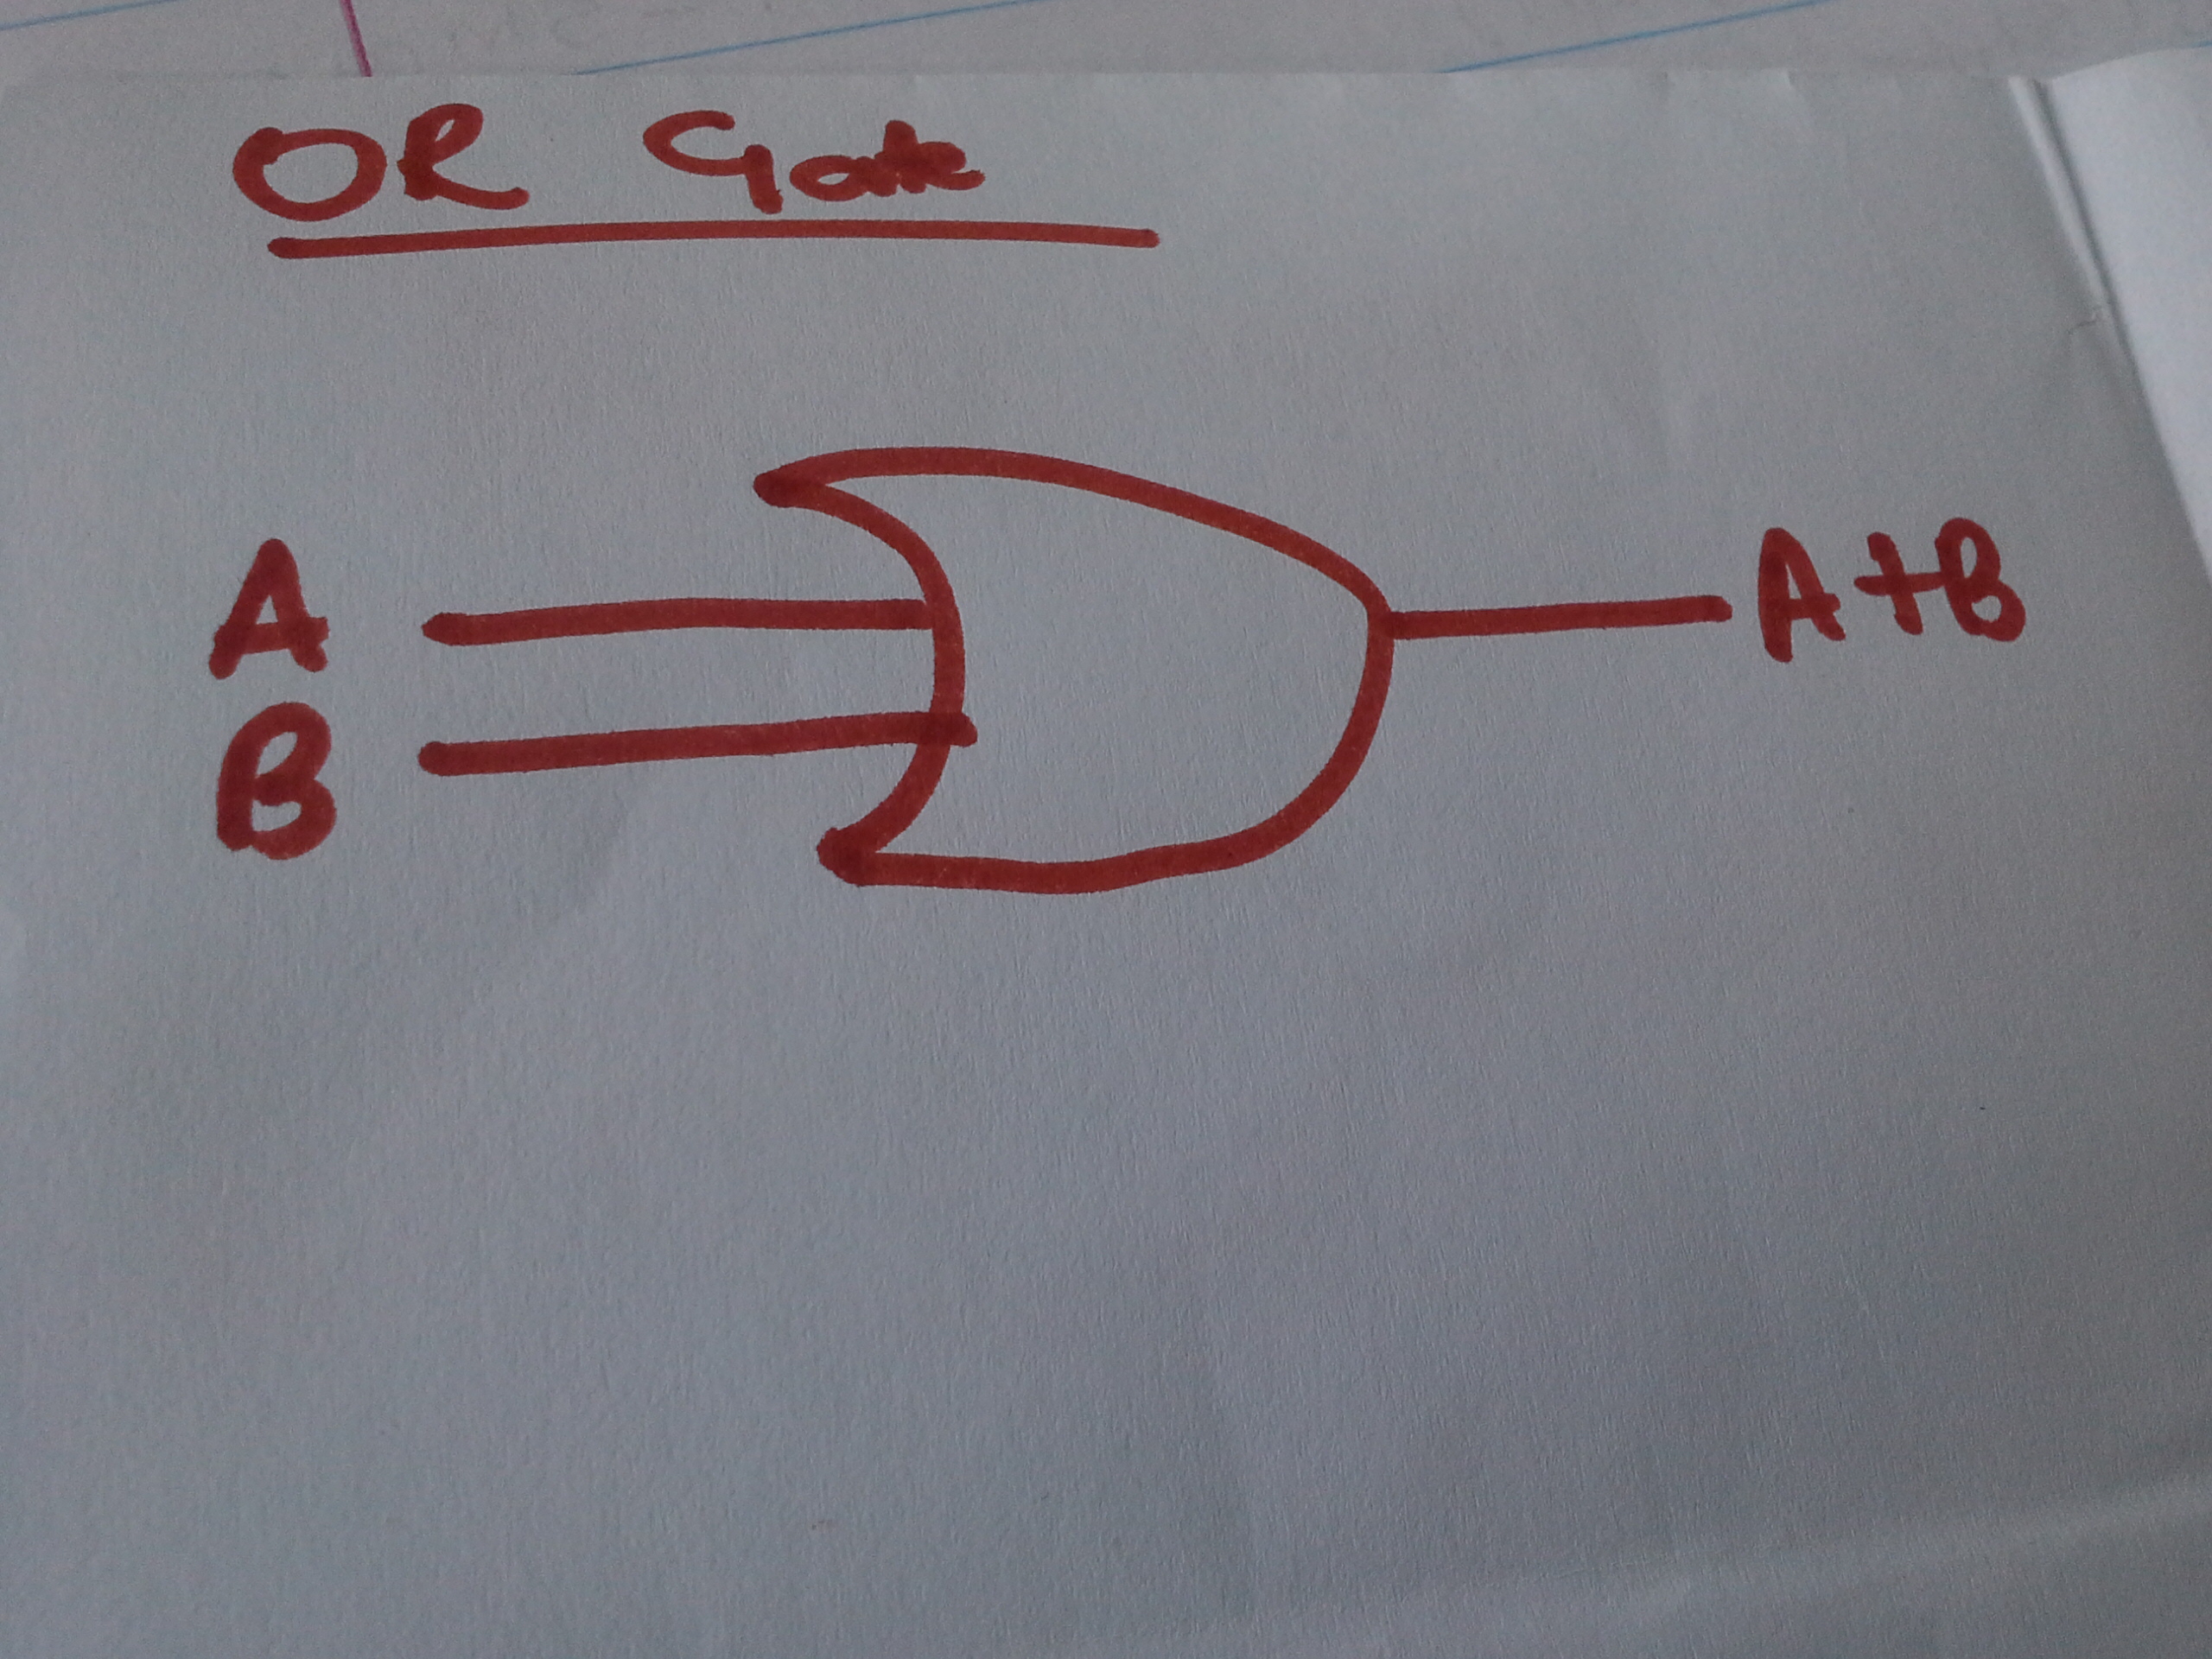 OR Gate
A
A+B
B